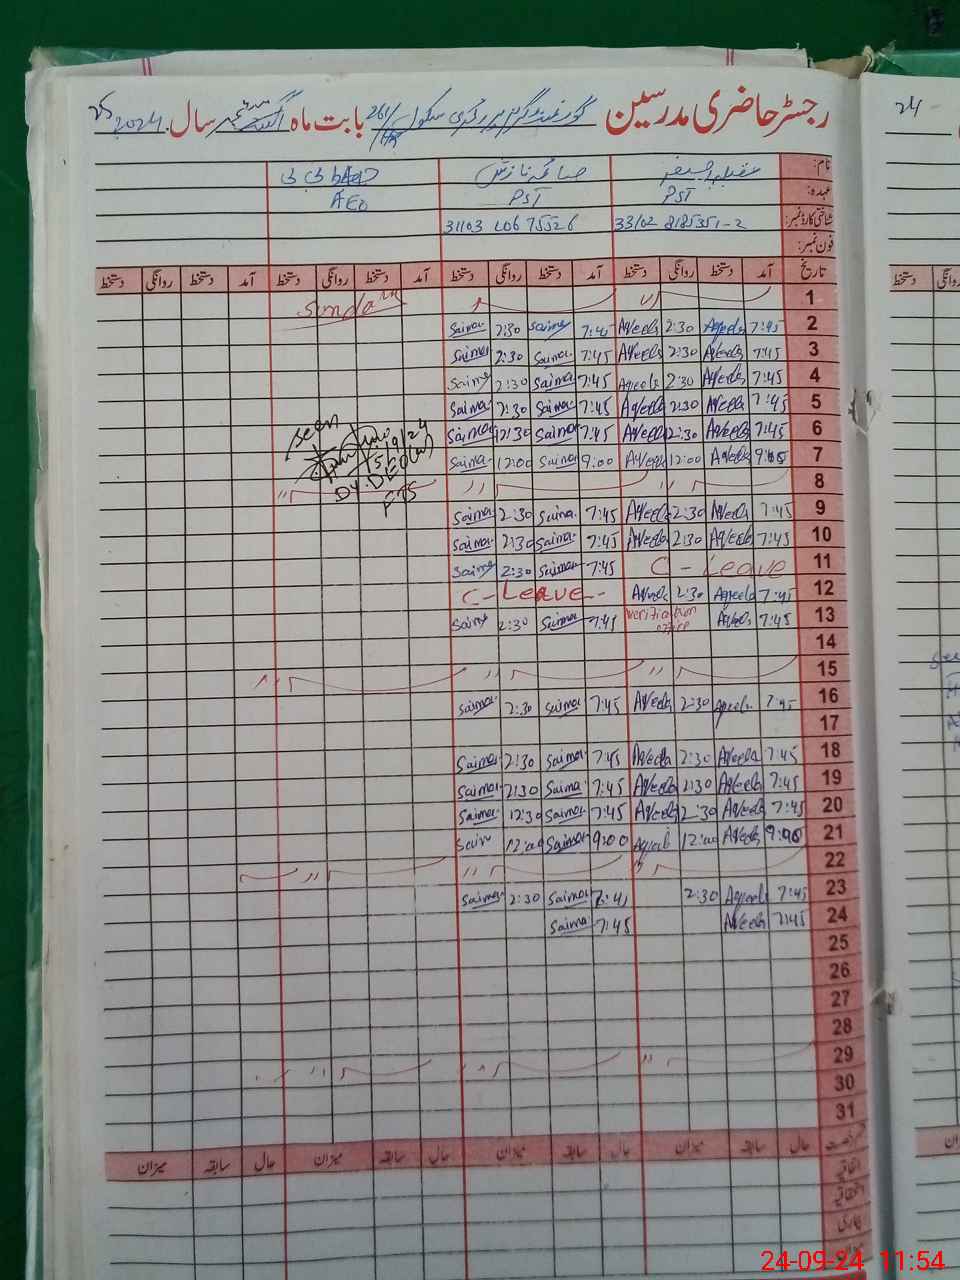 رجسٹر حاضری مدرسین گورنمنٹ گرلز پرائمری سکول 261/ بابت ماہ ستمبر سال 2024
24
نام:
عہدہ: PST PST AEO
شناختی کارڈ نمبر: 33102 8185351-2 31103
فون نمبر:
تاریخ آمد دستخط روانگی دستخط آمد دستخط روانگی دستخط آمد دستخط روانگی دستخط آمد دستخط روانگی دستخط
1 Sunday
2 7:45 Aqeela 2:30 Aqeela 7:45 Saima 2:30 Saima
3 7:45 Aqeela 2:30 Aqeela 7:45 Saima 2:30 Saima
4 7:45 Aqeela 2:30 Aqeela 7:45 Saima 2:30 Saima
5 7:45 Aqeela 2:30 Aqeela 7:45 Saima 2:30 Saima
6 7:45 Aqeela 12:30 Aqeela 7:45 Saima 12:30 Saima
7 Aqeela 12:00 Aqeela 9:00 Saima 12:00 Saima
seen
15/9/24
Dy. DEO (W)
8
9 7:45 Aqeela 2:30 Aqeela 7:45 Saima 2:30 Saima
10 7:45 Aqeela 2:30 Aqeela 7:45 Saima 2:30 Saima
11 C - Leave 7:45 Saima 2:30 Saima
12 7:45 Aqeela 2:30 Aqeela C - Leave -
13 7:45 Aqeela verification office 7:45 Saima 2:30 Saima
14
15
16 7:45 Aqeela 2:30 Aqeela 7:45 Saima 2:30 Saima
17
18 7:45 Aqeela 2:30 Aqeela 7:45 Saima 2:30 Saima
19 7:45 Aqeela 2:30 Aqeela 7:45 Saima 2:30 Saima
20 7:45 Aqeela 2:30 Aqeela 7:45 Saima 12:30 Saima
21 9:00 Aqeela 12:00 Aqeela 9:00 Saima 12:00 Saima
22
23 7:45 Aqeela 2:30 7:45 Saima 2:30 Saima
24 7:45 Aqeela 7:45 Saima
25
26
27
28
29
30
31
حال سابقہ میزان حال سابقہ میزان حال سابقہ میزان حال سابقہ میزان
اتفاقیہ
استحقاقیہ
بیماری
میزان
24-09-24 11:54